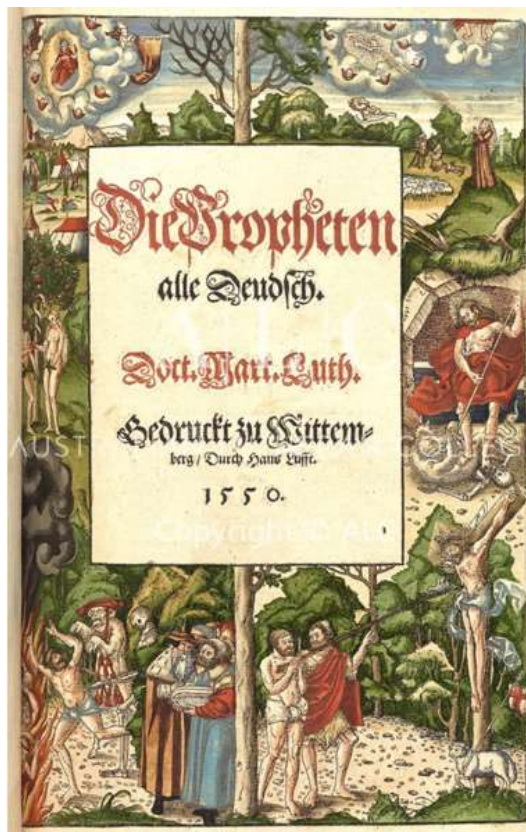 Die Propheten
alle Deudsch.
Doct. Mart. Luth.
Gedruckt zu Wittem-
berg / Durch Hans Lufft.
1550.
Copyright ©